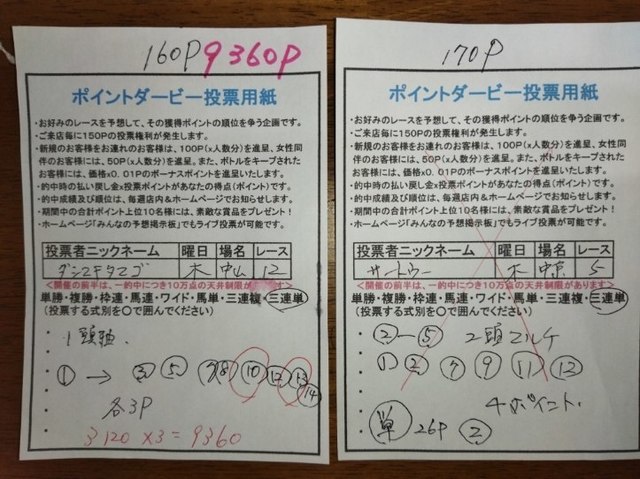 160P 9360P
ポイントダービー投票用紙
・お好みのレースを予想して、その獲得ポイントの順位を争う企画です。
・ご来店毎に150Pの投票権利が発生します。
・新規のお客様をお連れのお客様は、100P(×人数分)を進呈、女性同
伴のお客様には、50P(×人数分)を進呈。また、ボトルをキープされた
お客様には、価格x0.01Pのボーナスポイントを進呈いたします。
・的中時の払い戻し金×投票ポイントがあなたの得点(ポイント)です。
・的中成績及び順位は、毎週店内&ホームページでお知らせします。
・期間中の合計ポイント上位10名様には、素敵な賞品をプレゼント!
・ホームページ「みんなの予想掲示板」でもライブ投票が可能です。
投票者ニックネーム 曜日 場名 レース
ダシマキタマゴ 木 中山 12
<開催の前半は、一的中につき10万点の天井制限があります>
単勝・複勝・枠連・馬連・ワイド・馬単・三連複・三連単
(投票する式別を〇で囲んでください)
1頭軸.
① → ③ ⑤ ⑦ ⑧ ⑩ ⑫ ⑬ ⑭
各3P
3120×3=9360
170P
ポイントダービー投票用紙
・お好みのレースを予想して、その獲得ポイントの順位を争う企画です。
・ご来店毎に150Pの投票権利が発生します。
・新規のお客様をお連れのお客様は、100P(×人数分)を進呈、女性同
伴のお客様には、50P(×人数分)を進呈。また、ボトルをキープされた
お客様には、価格x0.01Pのボーナスポイントを進呈いたします。
・的中時の払い戻し金×投票ポイントがあなたの得点(ポイント)です。
・的中成績及び順位は、毎週店内&ホームページでお知らせします。
・期間中の合計ポイント上位10名様には、素敵な賞品をプレゼント!
・ホームページ「みんなの予想掲示板」でもライブ投票が可能です。
投票者ニックネーム 曜日 場名 レース
サートゥー 木 中京 5
<開催の前半は、一的中につき10万点の天井制限があります>
単勝・複勝・枠連・馬連・ワイド・馬単・三連複・三連単
(投票する式別を〇で囲んでください)
②-⑤ 2頭マルチ
① ② ⑦ ⑨ ⑪ ⑫
4ポイント.
単 26P ②